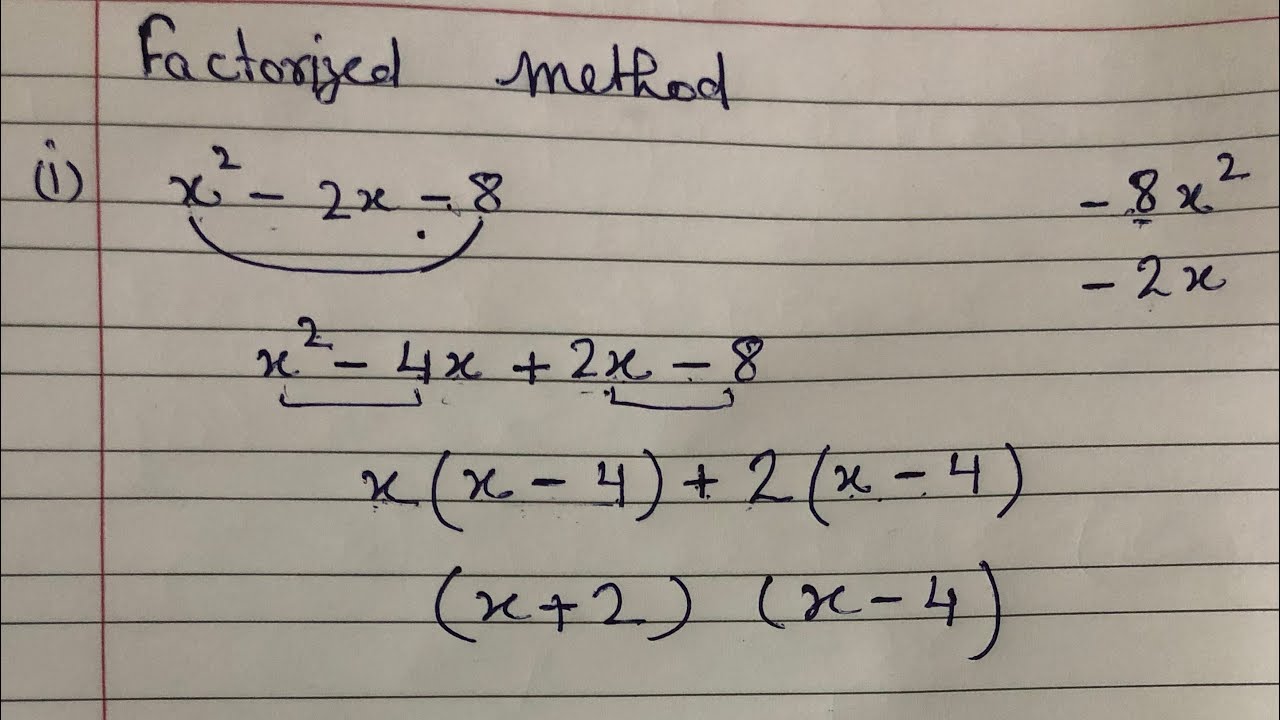 Factorized method
(i) x² - 2x - 8
- 8x²
- 2x
x² - 4x + 2x - 8
x(x - 4) + 2(x - 4)
(x + 2) (x - 4)